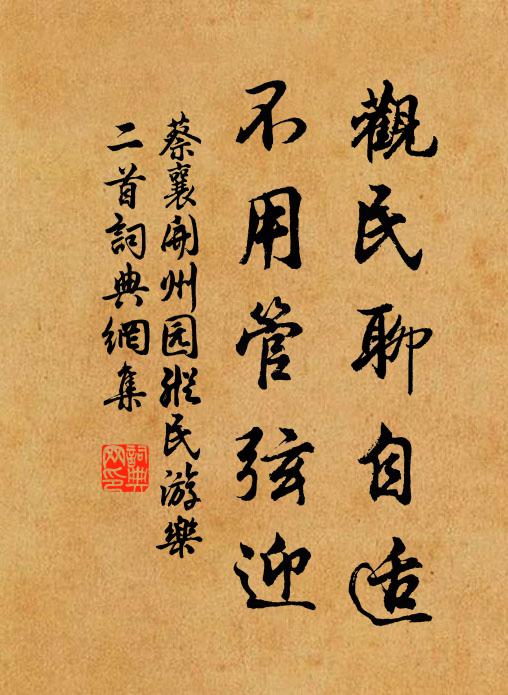 觀民聊自适
不用管弦迎
蔡襄開州园縱民游樂
二首詞典網集
詞典
网印